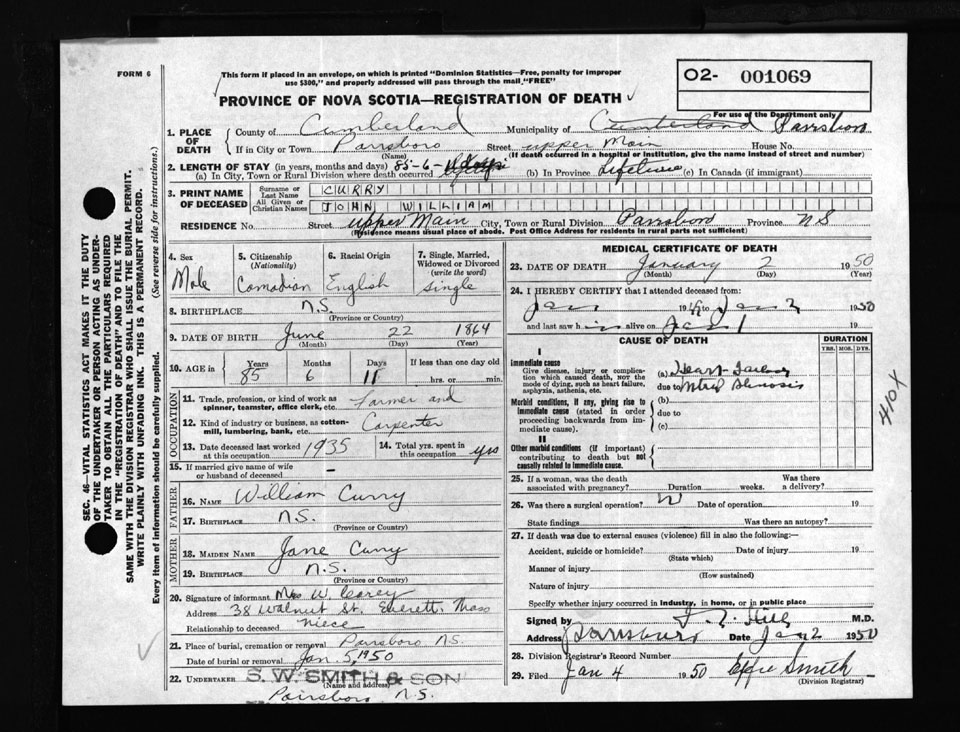 FORM 6
This form if placed in an envelope, on which is printed "Dominion Statistics—Free, penalty for improper
use $300," and properly addressed will pass through the mail "FREE"
O2- 001069
For use of the Department only
PROVINCE OF NOVA SCOTIA—REGISTRATION OF DEATH
1. PLACE OF DEATH { County of Cumberland Municipality of Cumberland Parrsboro
If in City or Town Parrsboro Street upper Main House No.
(Name) (If death occurred in a hospital or institution, give the name instead of street and number)
2. LENGTH OF STAY (in years, months and days) 85-6-
(a) In City, Town or Rural Division where death occurred (b) In Province Lifetime (c) In Canada (if immigrant)
3. PRINT NAME OF DECEASED { Surname or Last Name CURRY
All Given or Christian Names JOHN WILLIAM
RESIDENCE No. Street upper Main City, Town or Rural Division Parrsboro Province N S
(Residence means usual place of abode. Post Office Address for residents in rural parts not sufficient)
4. Sex Male
5. Citizenship (Nationality) Canadian
6. Racial Origin English
7. Single, Married, Widowed or Divorced (write the word) Single
8. BIRTHPLACE N.S.
(Province or Country)
9. DATE OF BIRTH June 22 1864
(Month) (Day) (Year)
10. AGE in { Years 85 Months 6 Days 11 If less than one day old
hrs. or min.
OCCUPATION
11. Trade, profession or kind of work as spinner, teamster, office clerk, etc. Farmer and
12. Kind of industry or business, as cotton-mill, lumbering, bank, etc. Carpenter
13. Date deceased last worked at this occupation 1935
14. Total yrs. spent in this occupation yrs
15. If married give name of wife or husband of deceased —
FATHER
16. NAME William Curry
17. BIRTHPLACE N.S.
(Province or Country)
MOTHER
18. MAIDEN NAME Jane Curry
19. BIRTHPLACE N.S.
(Province or Country)
20. Signature of informant W. Carey
Address 38 Walnut St. Everett. Mass
Relationship to deceased niece
21. Place of burial, cremation or removal Parrsboro N.S.
Date of burial or removal Jan. 5, 1950
22. UNDERTAKER S. W. SMITH & SON
(Name and address)
Parrsboro N.S.
MEDICAL CERTIFICATE OF DEATH
23. DATE OF DEATH January 2 1950
(Month) (Day) (Year)
24. I HEREBY CERTIFY that I attended deceased from:
Jan 19 to Jan 2 1950
and last saw him alive on Jan 1 19
CAUSE OF DEATH
DURATION
YRS. MOS. DYS.
I
Immediate cause
Give disease, injury or complication which caused death, not the mode of dying, such as heart failure, asphyxia, asthenia, etc.
(a) Heart Failure
due to Mitral Stenosis
Morbid conditions, if any, giving rise to immediate cause (stated in order proceeding backwards from immediate cause).
(b)
due to
(c)
II
Other morbid conditions (if important) contributing to death but not causally related to immediate cause.
410 x
25. If a woman, was the death associated with pregnancy? Duration weeks. Was there a delivery?
26. Was there a surgical operation? N Date of operation 19
State findings Was there an autopsy?
27. If death was due to external causes (violence) fill in also the following:—
Accident, suicide or homicide? Date of injury 19
(State which)
Manner of injury
(How sustained)
Nature of injury
Specify whether injury occurred in industry, in home, or in public place
Signed by Hill M.D.
Address Parrsboro Date Jan 2 1950
28. Division Registrar's Record Number
29. Filed Jan 4 1950 Effie Smith
(Division Registrar)
SEC. 46—VITAL STATISTICS ACT MAKES IT THE DUTY
OF THE UNDERTAKER OR PERSON ACTING AS UNDER-
TAKER TO OBTAIN ALL THE PARTICULARS REQUIRED
IN THE "REGISTRATION OF DEATH" AND TO FILE THE
SAME WITH THE DIVISION REGISTRAR WHO SHALL ISSUE THE BURIAL PERMIT.
WRITE PLAINLY WITH UNFADING INK. THIS IS A PERMANENT RECORD.
Every item of information should be carefully supplied. (See reverse side for instructions.)